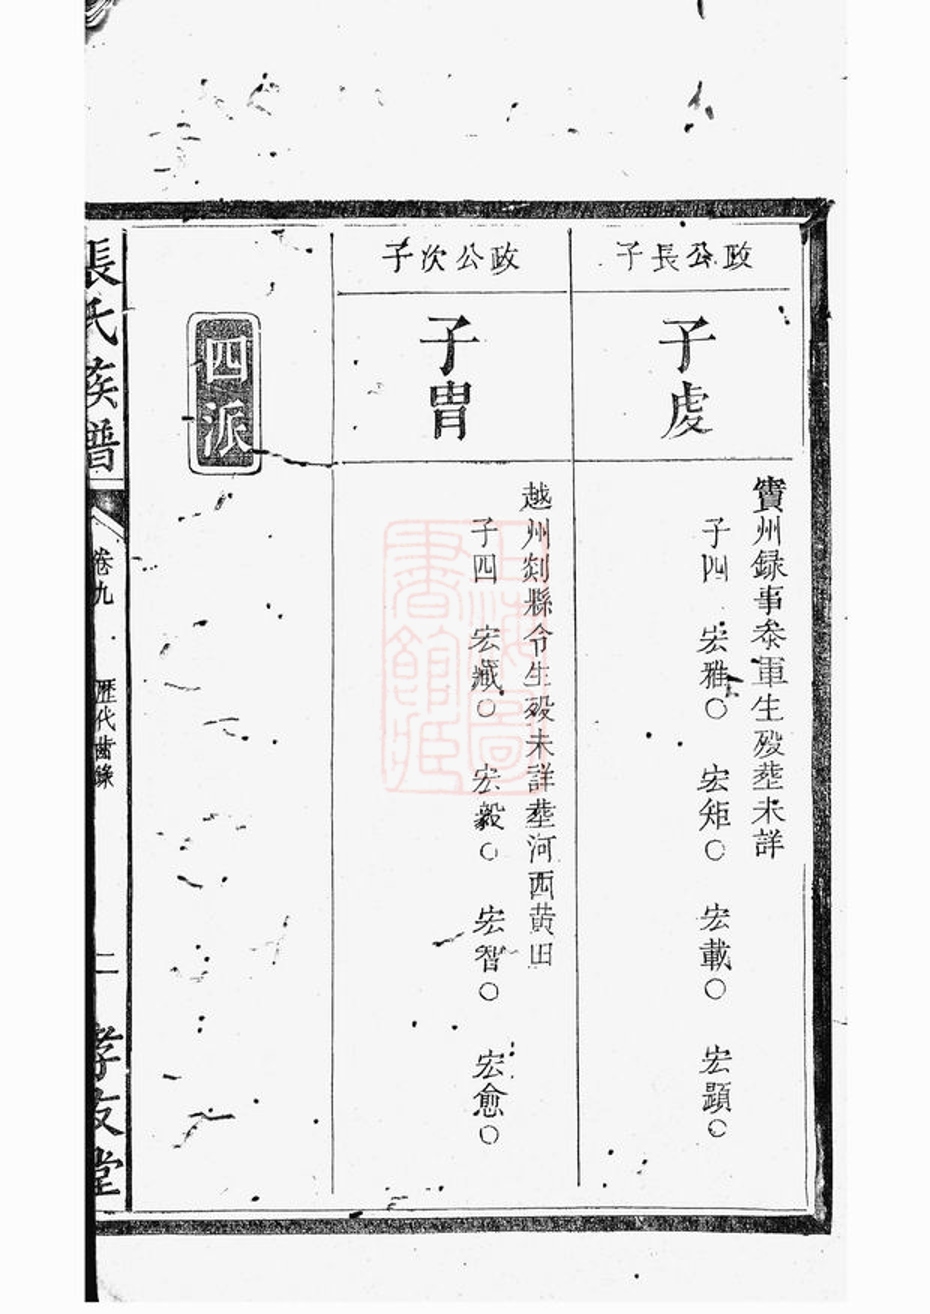 政公長子
子虔
賨州録事叅軍生殁塟未詳
子四 宏雅○ 宏矩○ 宏載○ 宏顕○
政公次子
子冑
越州剡縣令生殁未詳塟河西黄田
子四 宏臧○ 宏毅○ 宏智○ 宏愈○
四派
張氏族譜
卷九
歷代齒錄
二
孝友堂
上海圖書館藏